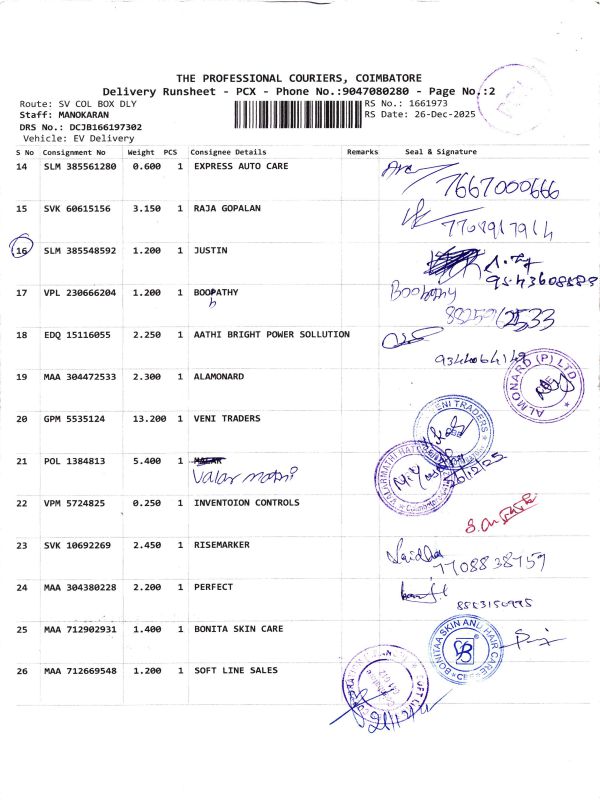 THE PROFESSIONAL COURIERS, COIMBATORE
Delivery Runsheet - PCX - Phone No.:9047080280 - Page No.:2
Route: SV COL BOX DLY
RS No.: 1661973
Staff: MANOKARAN
RS Date: 26-Dec-2025
DRS No.: DCJB166197302
Vehicle: EV Delivery
S No Consignment No Weight PCS Consignee Details Remarks Seal & Signature
14 SLM 385561280 0.600 1 EXPRESS AUTO CARE
7667000666
15 SVK 60615156 3.150 1 RAJA GOPALAN
7708917914
16 SLM 385548592 1.200 1 JUSTIN
9543608588
17 VPL 230666204 1.200 1 BOOPATHY
Boopathy
18 EDQ 15116055 2.250 1 AATHI BRIGHT POWER SOLLUTION
9344064149
19 MAA 304472533 2.300 1 ALAMONARD
ALMONARD (P) LTD
20 GPM 5535124 13.200 1 VENI TRADERS
VENI TRADERS
21 POL 1384813 5.400 1
Valar mathi
26/12/25
22 VPM 5724825 0.250 1 INVENTOION CONTROLS
23 SVK 10692269 2.450 1 RISEMARKER
7708838759
24 MAA 304380228 2.200 1 PERFECT
25 MAA 712902931 1.400 1 BONITA SKIN CARE
BONITAA SKIN AND HAIR CARE
CBE
26 MAA 712669548 1.200 1 SOFT LINE SALES